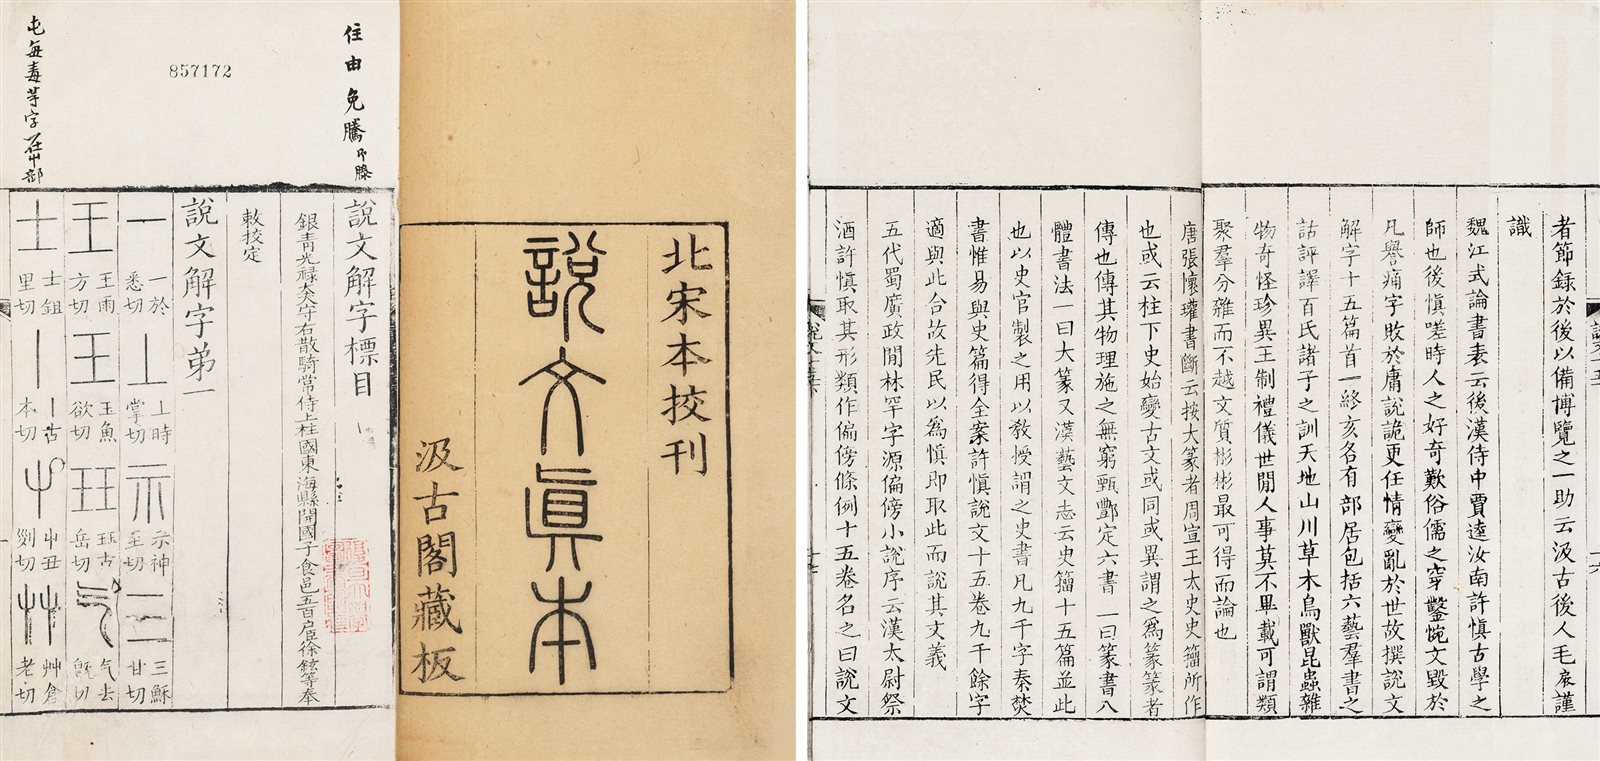 北宋本挍刊
說文眞本
汲古閣藏板
住由免騰
857172
屯每毒芉字在屮部
說文解字標目
銀青光祿大夫守右散騎常侍上柱國東海縣開國子食邑五百戶臣徐鉉等奉
敕挍定
說文解字弟一
一 一於悉切 丄 丄時掌切 示 示神至切 三 三穌甘切
王 王雨方切 玉 玉魚欲切 玨 玨古岳切 气 气去旣切
士 士鉏里切 丨 丨古本切 屮 屮丑列切 艸 艸倉老切
者節錄於後以備博覽之一助云汲古後人毛扆謹
識
魏江式論書表云後漢侍中賈逵汝南許愼古學之
師也後愼嗟時人之好奇歎俗儒之穿鑿惋文毀於
凡譽痛字敗於庸說詭更任情變亂於世故撰說文
解字十五篇首一終亥各有部居包括六藝羣書之
詁評譯百氏諸子之訓天地山川草木鳥獸昆蟲雜
物奇怪珍異王制禮儀世閒人事莫不畢載可謂類
聚羣分雜而不越文質彬彬最可得而論也
唐張懷瓘書斷云按大篆者周宣王太史史籒所作
也或云柱下史始變古文或同或異謂之爲篆篆者
傳也傳其物理施之無窮甄酆定六書一曰篆書八
體書法一曰大篆又漢藝文志云史籒十五篇並此
也以史官製之用以敎授謂之史書凡九千字秦焚
書惟易與史篇得全案許愼說文十五卷九千餘字
適與此合故先民以爲愼即取此而說其文義
五代蜀廣政閒林罕字源偏傍小說序云漢太尉祭
酒許愼取其形類作偏傍條例十五卷名之曰說文